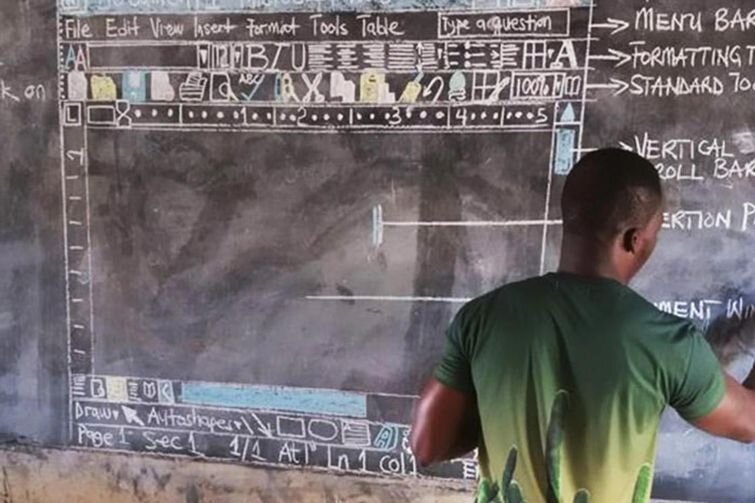 File Edit View Insert Format Tools Table Type a question
MENU BAR
AA B I U A
FORMATTING T
ABC 100%
STANDARD TOO
k on
L 8 1 2 3 4 5
2
VERTICAL
ROLL BAR
ERTION P
MENT WIN
Draw Autoshapes A
Page 1 Sec 1 1/1 At Ln 1 Col 1